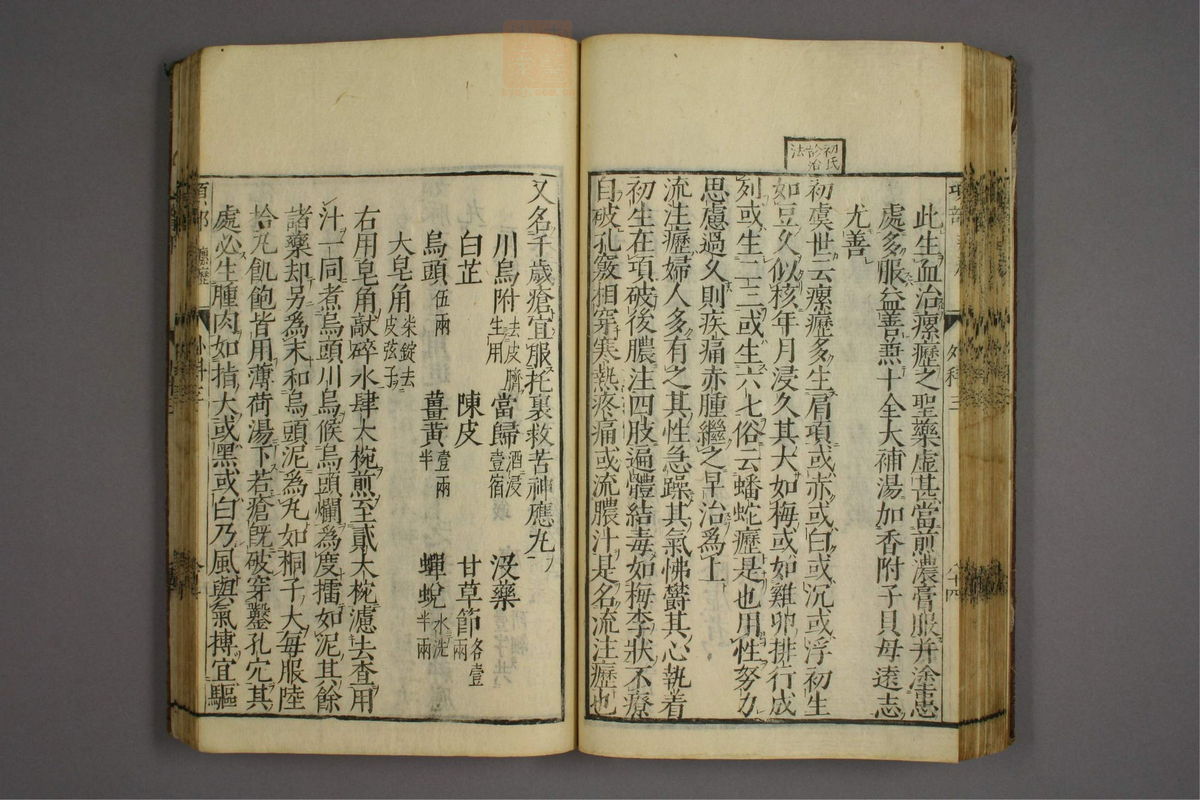 初氏
診治
法
此生血治瘰癧之聖藥虛甚當煎濃膏服并塗患
處多服益善兼十全大補湯加香附子貝母遠志
尤善
初虞世云瘰癧多生肩項或赤或白或沉或浮初生
如豆久似核年月浸久其大如梅或如雞卵排行成
列或生二三或生六七俗云蟠蛇癧是也用性努力
思慮過久則疾痛赤腫繼之早治爲上
流注癧婦人多有之其性急躁其氣怫鬱其心執着
初生在項破後膿注四肢遍體結毒如梅李狀不療
自破孔竅相穿寒熱疼痛或流膿汁是名流注癧也
又名千歲瘡宜服托裏救苦神應丸
川烏附去皮臍生用 當歸酒浸壹宿 沒藥
白芷 陳皮 甘草節各壹兩
烏頭伍兩 薑黃壹兩半 蟬蛻水洗半兩
大皂角柒錠去皮弦子
右用皂角敲碎水肆大椀煎至貳大椀濾去查用
汁一同煮烏頭川烏候烏頭爛爲度擂如泥其餘
諸藥却另爲末和烏頭泥爲丸如桐子大每服陸
拾丸飢飽皆用薄荷湯下若瘡旣破穿鑿孔穴其
處必生腫肉如指大或黑或白乃風與氣搏宜驅
項部 瘰癧 外科三